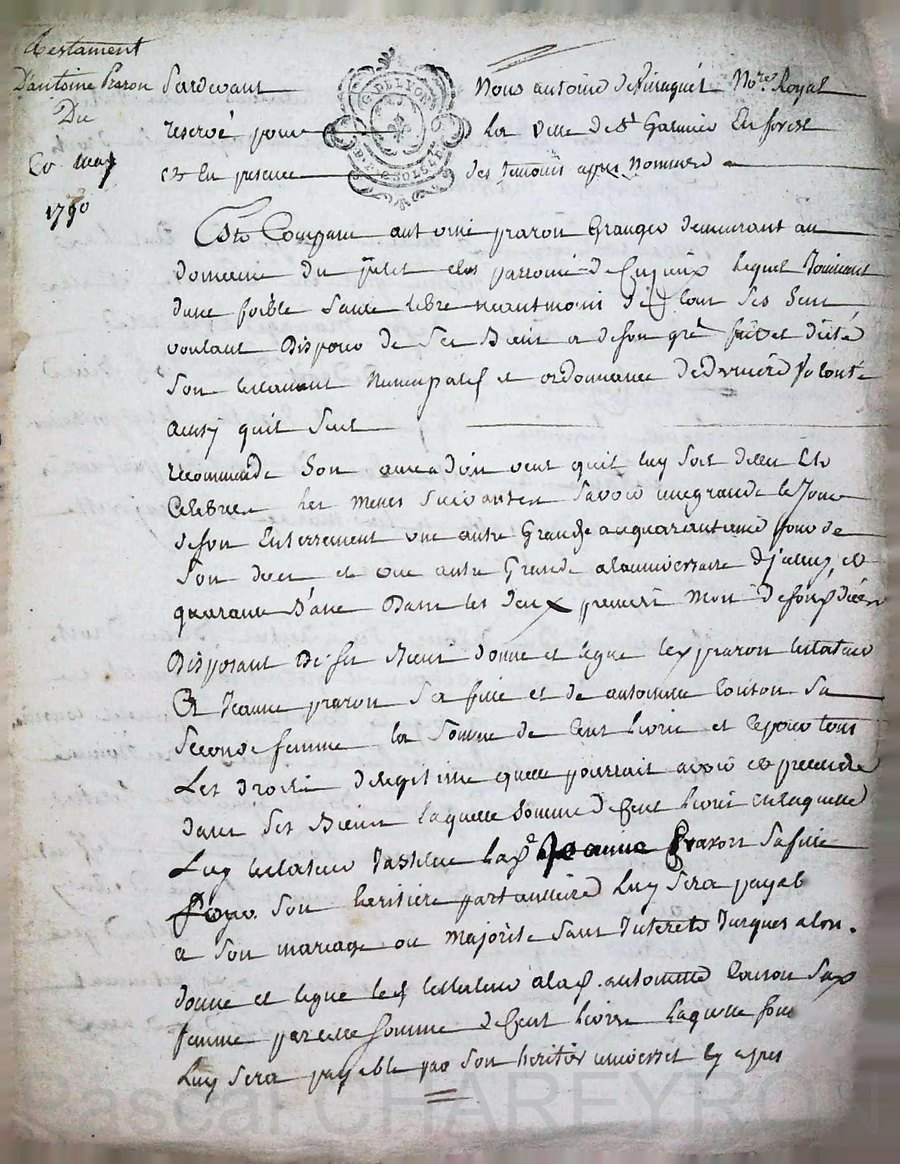 Testament
D'antoine Praron
Du
20 may
1790
Pardevant Nous antoine Nore Royal
reservé pour La ville de St Galmier En forest
et En presence des temoins apres Nommés
G. D. LYON
Este Comparu antoine praron Granger demeurant au
domeine du parroisse de Cuzieux Lequel Jouissant
dune foible Santé libre neantmoins de tous ses Sens
voulant Disposer de Ses Biens a de son gré fait et dicté
Son testament Nuncupatif et ordonnance de Derniere Volonté
ainsy quil Suit
recommande Son ame a dieu veut quil luy soit dittes Et
Celebrées Les Messes Suivantes Savoir une grande le Jour
de son Enterrement une autre Grande au quarantaine Jour de
Son deces et une autre Grande a lanniversaire dyceluy, et
quarante Dans les deux premiers Mois de son deces
Disposant De ses Biens donne et legue le praron testateur
a Jeanne praron Sa fille et de antoinne Sa
Seconde femme la Somme de Cent Livres et ce pour tous
Les droits de legitime quelle pourrait avoir et pretendre
dans Ses Biens laquelle Somme de Cent Livres en laquelle
Luy testateur Institue Jeanne Praron Sa fille
pour Son heritiere particuliere Luy Sera payable
a Son mariage ou Majorité Sans Interets Jusques alors.
donne et legue le testateur a antoinne Sa
femme pareille Somme de Cent Livres Laquelle
Luy Sera payable par Son heritier universel cy apres
Pascal CHAREYRON